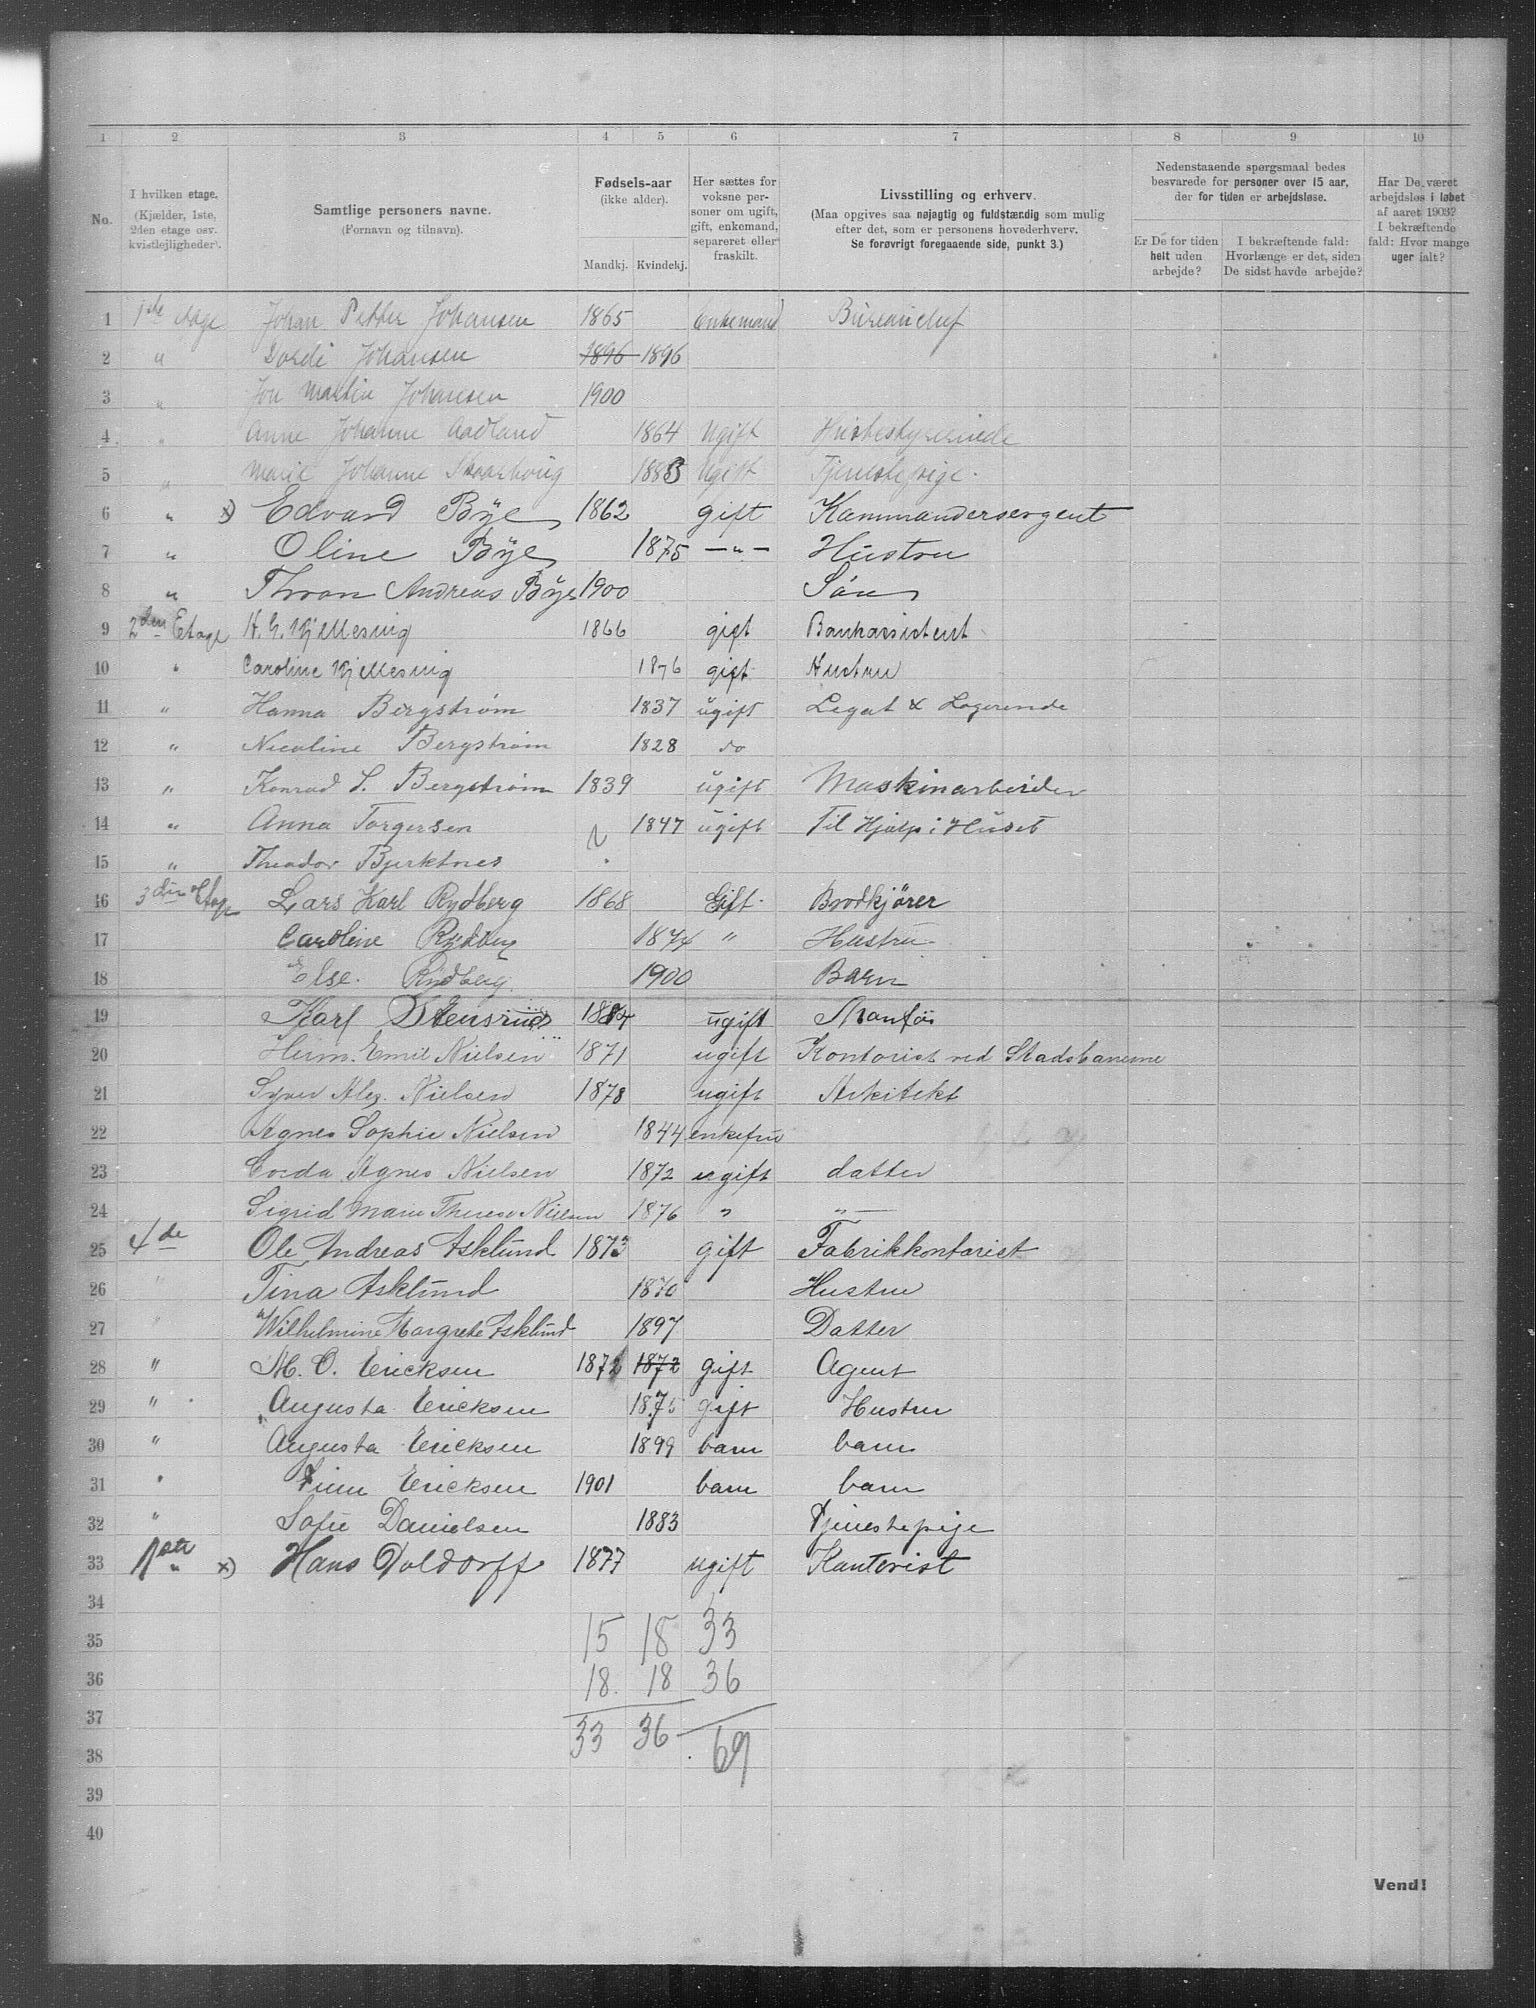 1 2 3 4 5 6 7 8 9 10
No.
I hvilken etage.
(Kjælder, 1ste,
2den etage osv.
kvistlejligheder).
Samtlige personers navne.
(Fornavn og tilnavn).
Fødsels-aar
(ikke alder).
Mandkj. Kvindekj.
Her sættes for
voksne per-
soner om ugift,
gift, enkemand,
separeret eller
fraskilt.
Livsstilling og erhverv.
(Maa opgives saa nøjagtig og fuldstændig som mulig
efter det, som er personens hovederhverv.
Se forøvrigt foregaaende side, punkt 3.)
Nedenstaaende spørgsmaal bedes
besvarede for personer over 15 aar,
der for tiden er arbejdsløse.
Er De for tiden
helt uden
arbejde?
I bekræftende fald:
Hvorlænge er det, siden
De sidst havde arbejde?
Har De været
arbejdsløs i løbet
af aaret 1903?
I bekræftende
fald: Hvor mange
uger ialt?
1 1ste etage Johan Petter Johansen 1865 Enkemand Bureauchef
2 " Dordi Johansen 1896 1896
3 " Jon Martin Johansen 1900
4 " Anne Johanne Aadland 1864 Ugift Husbestyrerinde
5 " Marie Johanne 1883 Ugift Tjenestepige.
6 " x) Edvard Bye 1862 gift Kammandersergent
7 " Oline Bye 1875 —"— Hustru
8 " Thron Andreas Bye 1900 Søn
9 2den Etage H. G. Kjellesvig 1866 gift Bankassistent
10 " Caroline Kjellesvig 1876 gift Hustru
11 " Hanna Bergstrøm 1837 ugift Legat & Logerende
12 " Nicoline Bergstrøm 1828 do
13 " Konrad S. Bergstrøm 1839 ugift Maskinarbeider
14 " Anna Torgersen 1847 ugift Til Hjælp i Huset
15 " Theodor Bjerktnes
16 3die Etage Lars Karl Rydberg 1868 Gift Brodkjører
17 Caroline Rydberg 1874 " Hustru
18 Else Rydberg 1900 Barn
19 Karl Stensrud 1884 ugift
20 Herm. Emil Nielsen 1871 ugift Kontorist ved Stadsbanerne
21 Syver Alex. Nielsen 1878 ugift Arkitekt
22 Agnes Sophie Nielsen 1844 enkefru
23 Agnes Nielsen 1872 ugift datter
24 Sigrid Marie Therese Nielsen 1876 " "—
25 4de Ole Andreas Asklund 1873 gift Fabrikkontorist
26 " Tina Asklund 1870 Hustru
27 " Wilhelmine Margrete Asklund 1897 Datter
28 " M. O. Ericksen 1872 1872 gift Agent
29 " Augusta Ericksen 1875 gift Hustru
30 " Augusta Ericksen 1899 barn barn
31 " Finn Ericksen 1901 barn barn
32 " Sofie Danielsen 1883 Tjenestepige
33 1ste " x) Hans Doldorff 1877 ugift Kontorist
34
35 15 18 33
36 18 18 36
37 33 36
38 69
39
40
Vend!